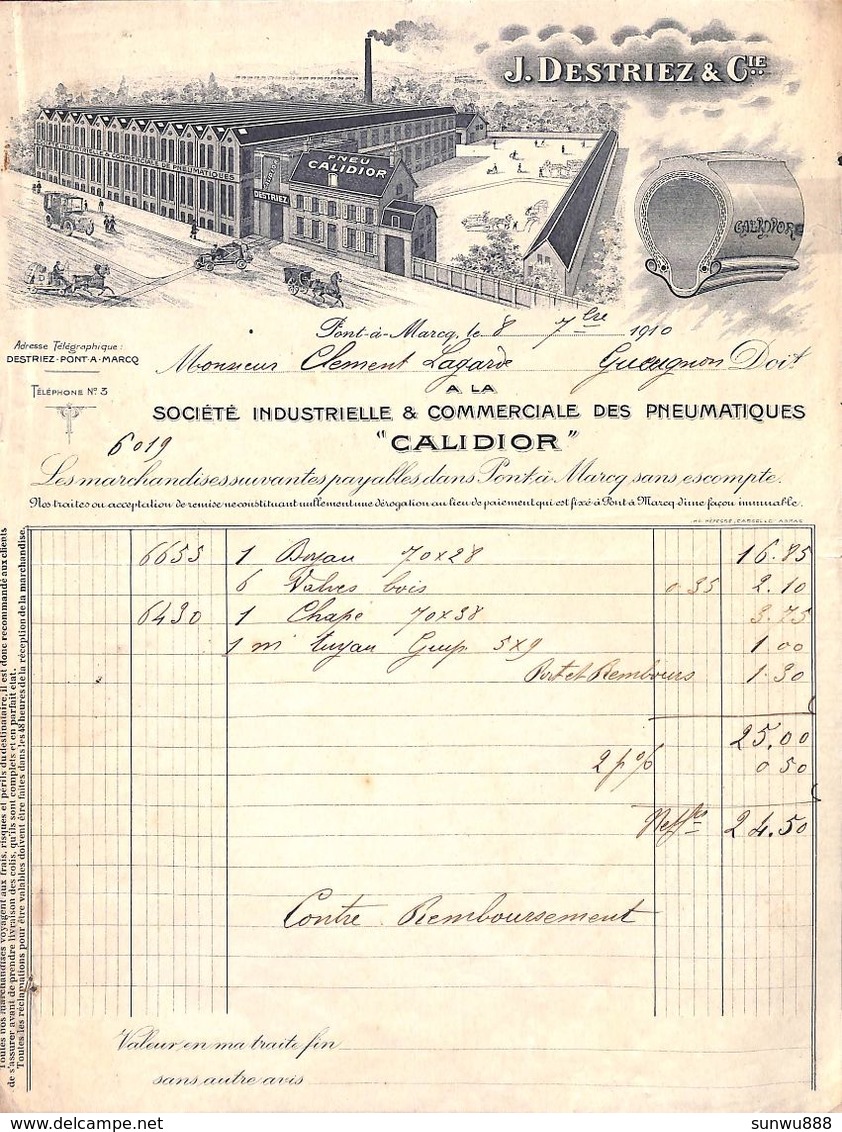 J. DESTRIEZ & CIE
STÉ INDUSTRIELLE & COMMERCIALE DE PNEUMATIQUES
PNEU
CALIDIOR
DESTRIEZ
CALIDIOR
Pont-à-Marcq, le 8 7bre 1910
Adresse Télégraphique:
DESTRIEZ-PONT-A-MARCQ
Monsieur Clement Lagarde Gueugnon Doit
TÉLÉPHONE No 3
A LA
SOCIÉTÉ INDUSTRIELLE & COMMERCIALE DES PNEUMATIQUES
"CALIDIOR"
6019
Les marchandises suivantes payables dans Pont à Marcq sans escompte.
Nos traites ou acceptation de remise ne constituant nullement une dérogation au lieu de paiement qui est fixé à Pont à Marcq d'une façon immuable.
6655 1 Boyau 70x28 16.85
6 Valves bois 0.35 2.10
6430 1 Chape 70x38 3.75
1 m tuyau Guip 5x9 1.00
Port et Rembours 1.30
25.00
2 p% 0 50
Net frs 24.50
Contre Remboursement
Valeur en ma traite fin
sans autre avis
Toutes nos marchandises voyagent aux frais, risques et périls du destinataire, il est donc recommandé aux clients
de s'assurer avant de prendre livraison des colis, qu'ils sont complets et en parfait état.
Toutes les réclamations pour être valables doivent être faites dans les 48 heures de la réception de la marchandise.
Delcampe.net
sunwu888